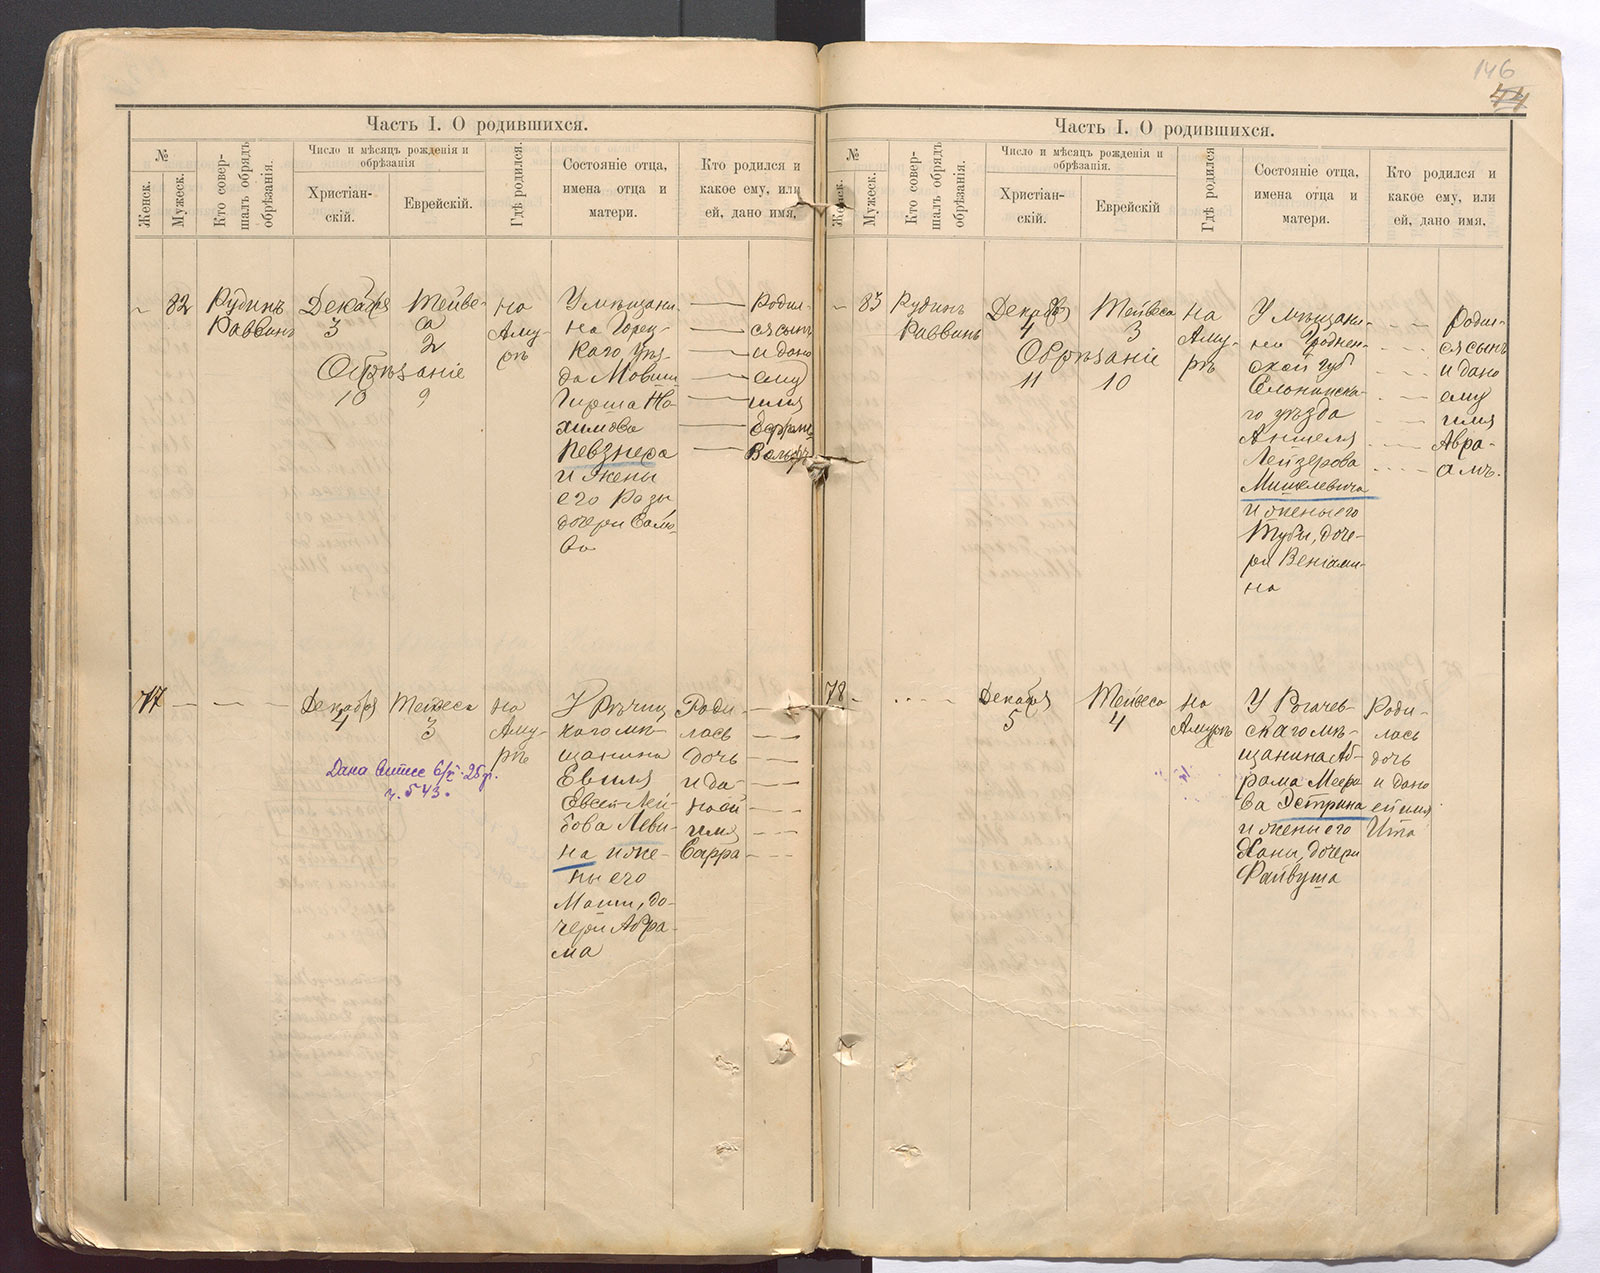 146
74
Часть I. О родившихся.
№
Женск.
Мужеск.
Кто совер-
шалъ обрядъ
обрѣзанія.
Число и мѣсяцъ рожденія и
обрѣзанія
Христіан-
скій.
Еврейскій.
Гдѣ родился.
Состояніе отца,
имена отца и
матери.
Кто родился и
какое ему, или
ей, дано имя.
82
Рудинъ
Раввинъ
Декабря
3
Тейве-
са
2
Обрѣзаніе
10 9
на
Аму-
рѣ
У мѣщани-
на Горец-
каго уѣз-
да Мовши
Гирша На-
химова
Певзнера
и жены
его Разы
дочери
Родил-
ся сынъ
и дано
ему
имя
Вольфъ
77
Декабря
4
Тейвеса
3
на
Аму-
рѣ
Дана
ч. 543.
У Рѣчиц
каго мѣ-
щанина
Евиля
Евсея Лей-
бова Леви-
на и же-
ны его
Маши, до-
чери Абра-
ма
Роди-
лась
дочь
и да-
но ей
имя
Сарра
Часть I. О родившихся.
№
Женск.
Мужеск.
Кто совер-
шалъ обрядъ
обрѣзанія.
Число и мѣсяцъ рожденія и
обрѣзанія.
Христіан-
скій.
Еврейскій
Гдѣ родился
Состояніе отца,
имена отца и
матери.
Кто родился и
какое ему, или
ей, дано имя.
83
Рудинъ
Раввинъ
Декабря
4
Тейвеса
3
Обрѣзаніе
11 10
на
Аму-
рѣ
У мѣщани-
на Гроднен-
ской губ
Слонимска-
го уѣзда
Аншеля
Лейзерова
Мишелевича
и жены его
Тубы, доче-
ри Веніами-
на
Родил-
ся сынъ
и дано
ему
имя
Авра-
амъ.
78
Декабря
5
Тейвеса
4
на
Амурѣ
У Рогачев-
скаго мѣ-
щанина Аб-
рама Меера
ва Эстрина
и жены его
Ханы, дочери
Файвуша
Роди-
лась
дочь
и дано
ей имя
Ита